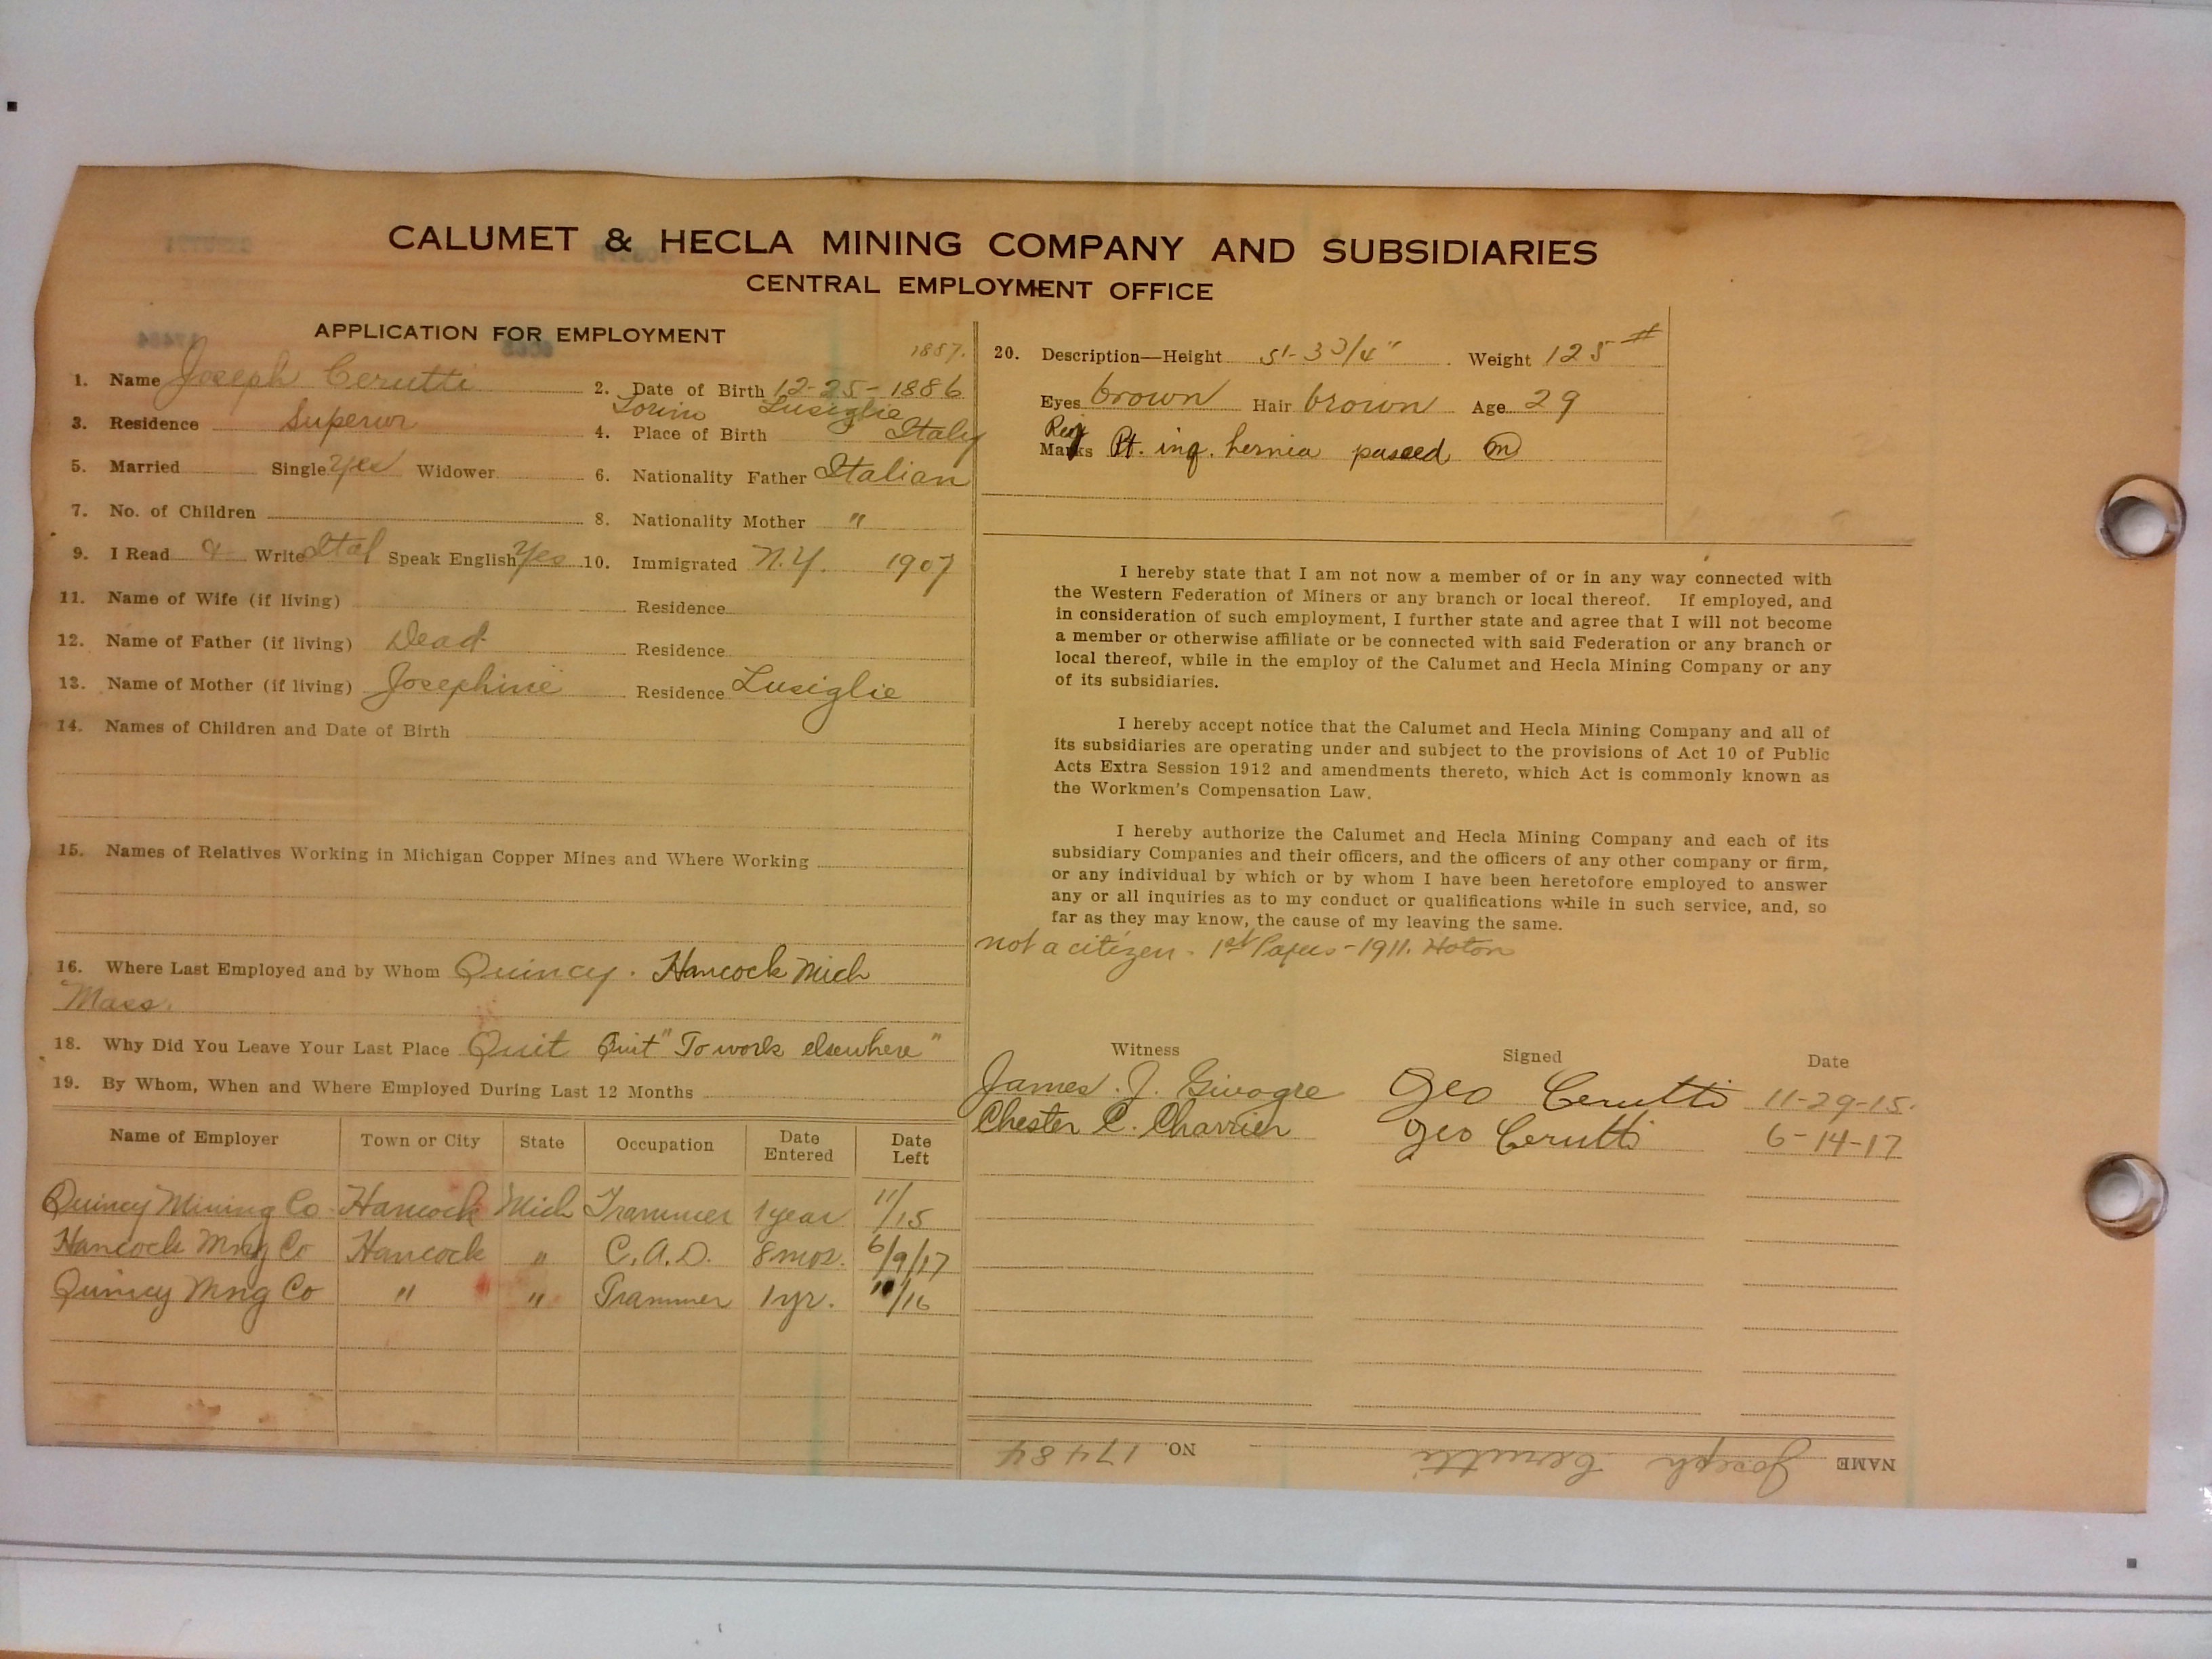 CALUMET & HECLA MINING COMPANY AND SUBSIDIARIES
CENTRAL EMPLOYMENT OFFICE
APPLICATION FOR EMPLOYMENT
1887.
1. Name Joseph Cerutti 2. Date of Birth 12-25-1886
Torino Lusiglie
3. Residence Superior 4. Place of Birth Italy
5. Married Single Yes Widower 6. Nationality Father Italian
7. No. of Children 8. Nationality Mother "
9. I Read & Write Ital Speak English Yes 10. Immigrated N.Y. 1907
11. Name of Wife (if living) Residence
12. Name of Father (if living) Dead Residence
13. Name of Mother (if living) Josephine Residence Lusiglie
14. Names of Children and Date of Birth
15. Names of Relatives Working in Michigan Copper Mines and Where Working
16. Where Last Employed and by Whom Quincy. Hancock Mich
Mass.
18. Why Did You Leave Your Last Place Quit Quit "To work elsewhere"
19. By Whom, When and Where Employed During Last 12 Months
Name of Employer Town or City State Occupation Date Entered Date Left
Quincy Mining Co. Hancock Mich Trammer 1 year 11/15
Hancock Mng Co Hancock " C.A.D. 8 mos. 6/9/17
Quincy Mng Co " " Trammer 1 yr. 11/16
20. Description—Height 5'-3 3/4" Weight 125 #
Eyes brown Hair brown Age 29
Rej
Marks Rt. ing. hernia passed m
I hereby state that I am not now a member of or in any way connected with
the Western Federation of Miners or any branch or local thereof. If employed, and
in consideration of such employment, I further state and agree that I will not become
a member or otherwise affiliate or be connected with said Federation or any branch or
local thereof, while in the employ of the Calumet and Hecla Mining Company or any
of its subsidiaries.
I hereby accept notice that the Calumet and Hecla Mining Company and all of
its subsidiaries are operating under and subject to the provisions of Act 10 of Public
Acts Extra Session 1912 and amendments thereto, which Act is commonly known as
the Workmen's Compensation Law.
I hereby authorize the Calumet and Hecla Mining Company and each of its
subsidiary Companies and their officers, and the officers of any other company or firm,
or any individual by which or by whom I have been heretofore employed to answer
any or all inquiries as to my conduct or qualifications while in such service, and, so
far as they may know, the cause of my leaving the same.
not a citizen - 1st Papers - 1911. Hoton
Witness Signed Date
James. J. Givogre Geo Cerutti 11-29-15.
Chester C. Charrier Geo Cerutti 6-14-17
NAME Joseph Cerutti NO. 17484